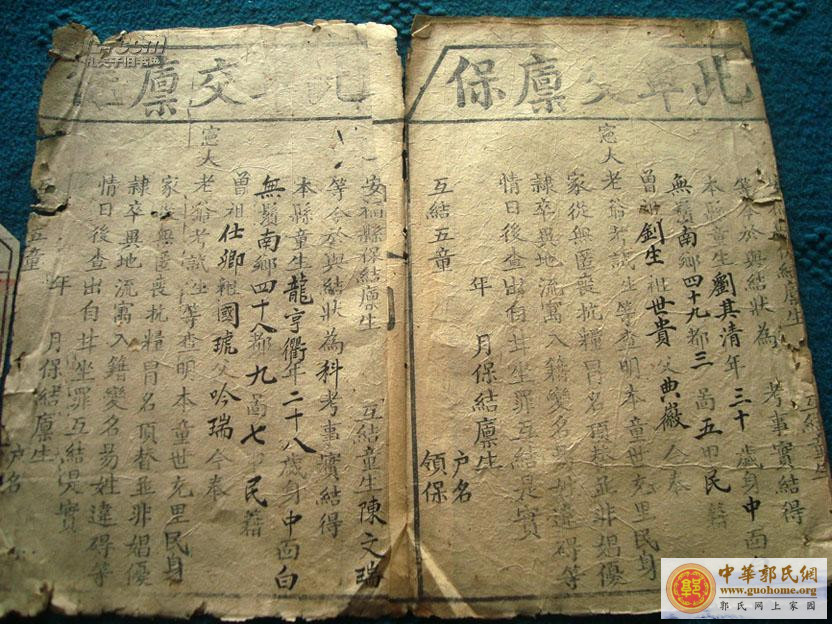 此單交廩保
安福縣保結廩生 互結童生
等今於與結狀為 考事實結得
本縣童生劉其清年三十 歲身中面
無鬚南鄉四十九都三 啚五甲民籍
曾祖釗生祖世貴父典徽 今奉
憲大老爺考試生等查明本童世充里民身
家從無匿喪抗糧冒名頂替並非娼優
隷卒異地流寓入籍變名易姓違碍等
情日後查出自甘坐罪互結是實
年 月保結廩生
互結五童
户名
領保
交廩
安福縣保結廩生 互結童生陳文瑞
等今於與結狀為科考事實結得
本縣童生龍亨衢年二十八歲身中面白
無鬚南鄉四十八都九啚七甲民籍
曾祖仕卿祖國琥父吟瑞今奉
憲大老爺考試生等查明本童世充里民身
家從無匿喪抗糧冒名頂替並非娼優
隷卒異地流寓入籍變名易姓違碍等
情日後查出自甘坐罪互結是實
年 月保結廩生
五童
户名
中華郭氏網
www.guohome.org
郭氏网上家园